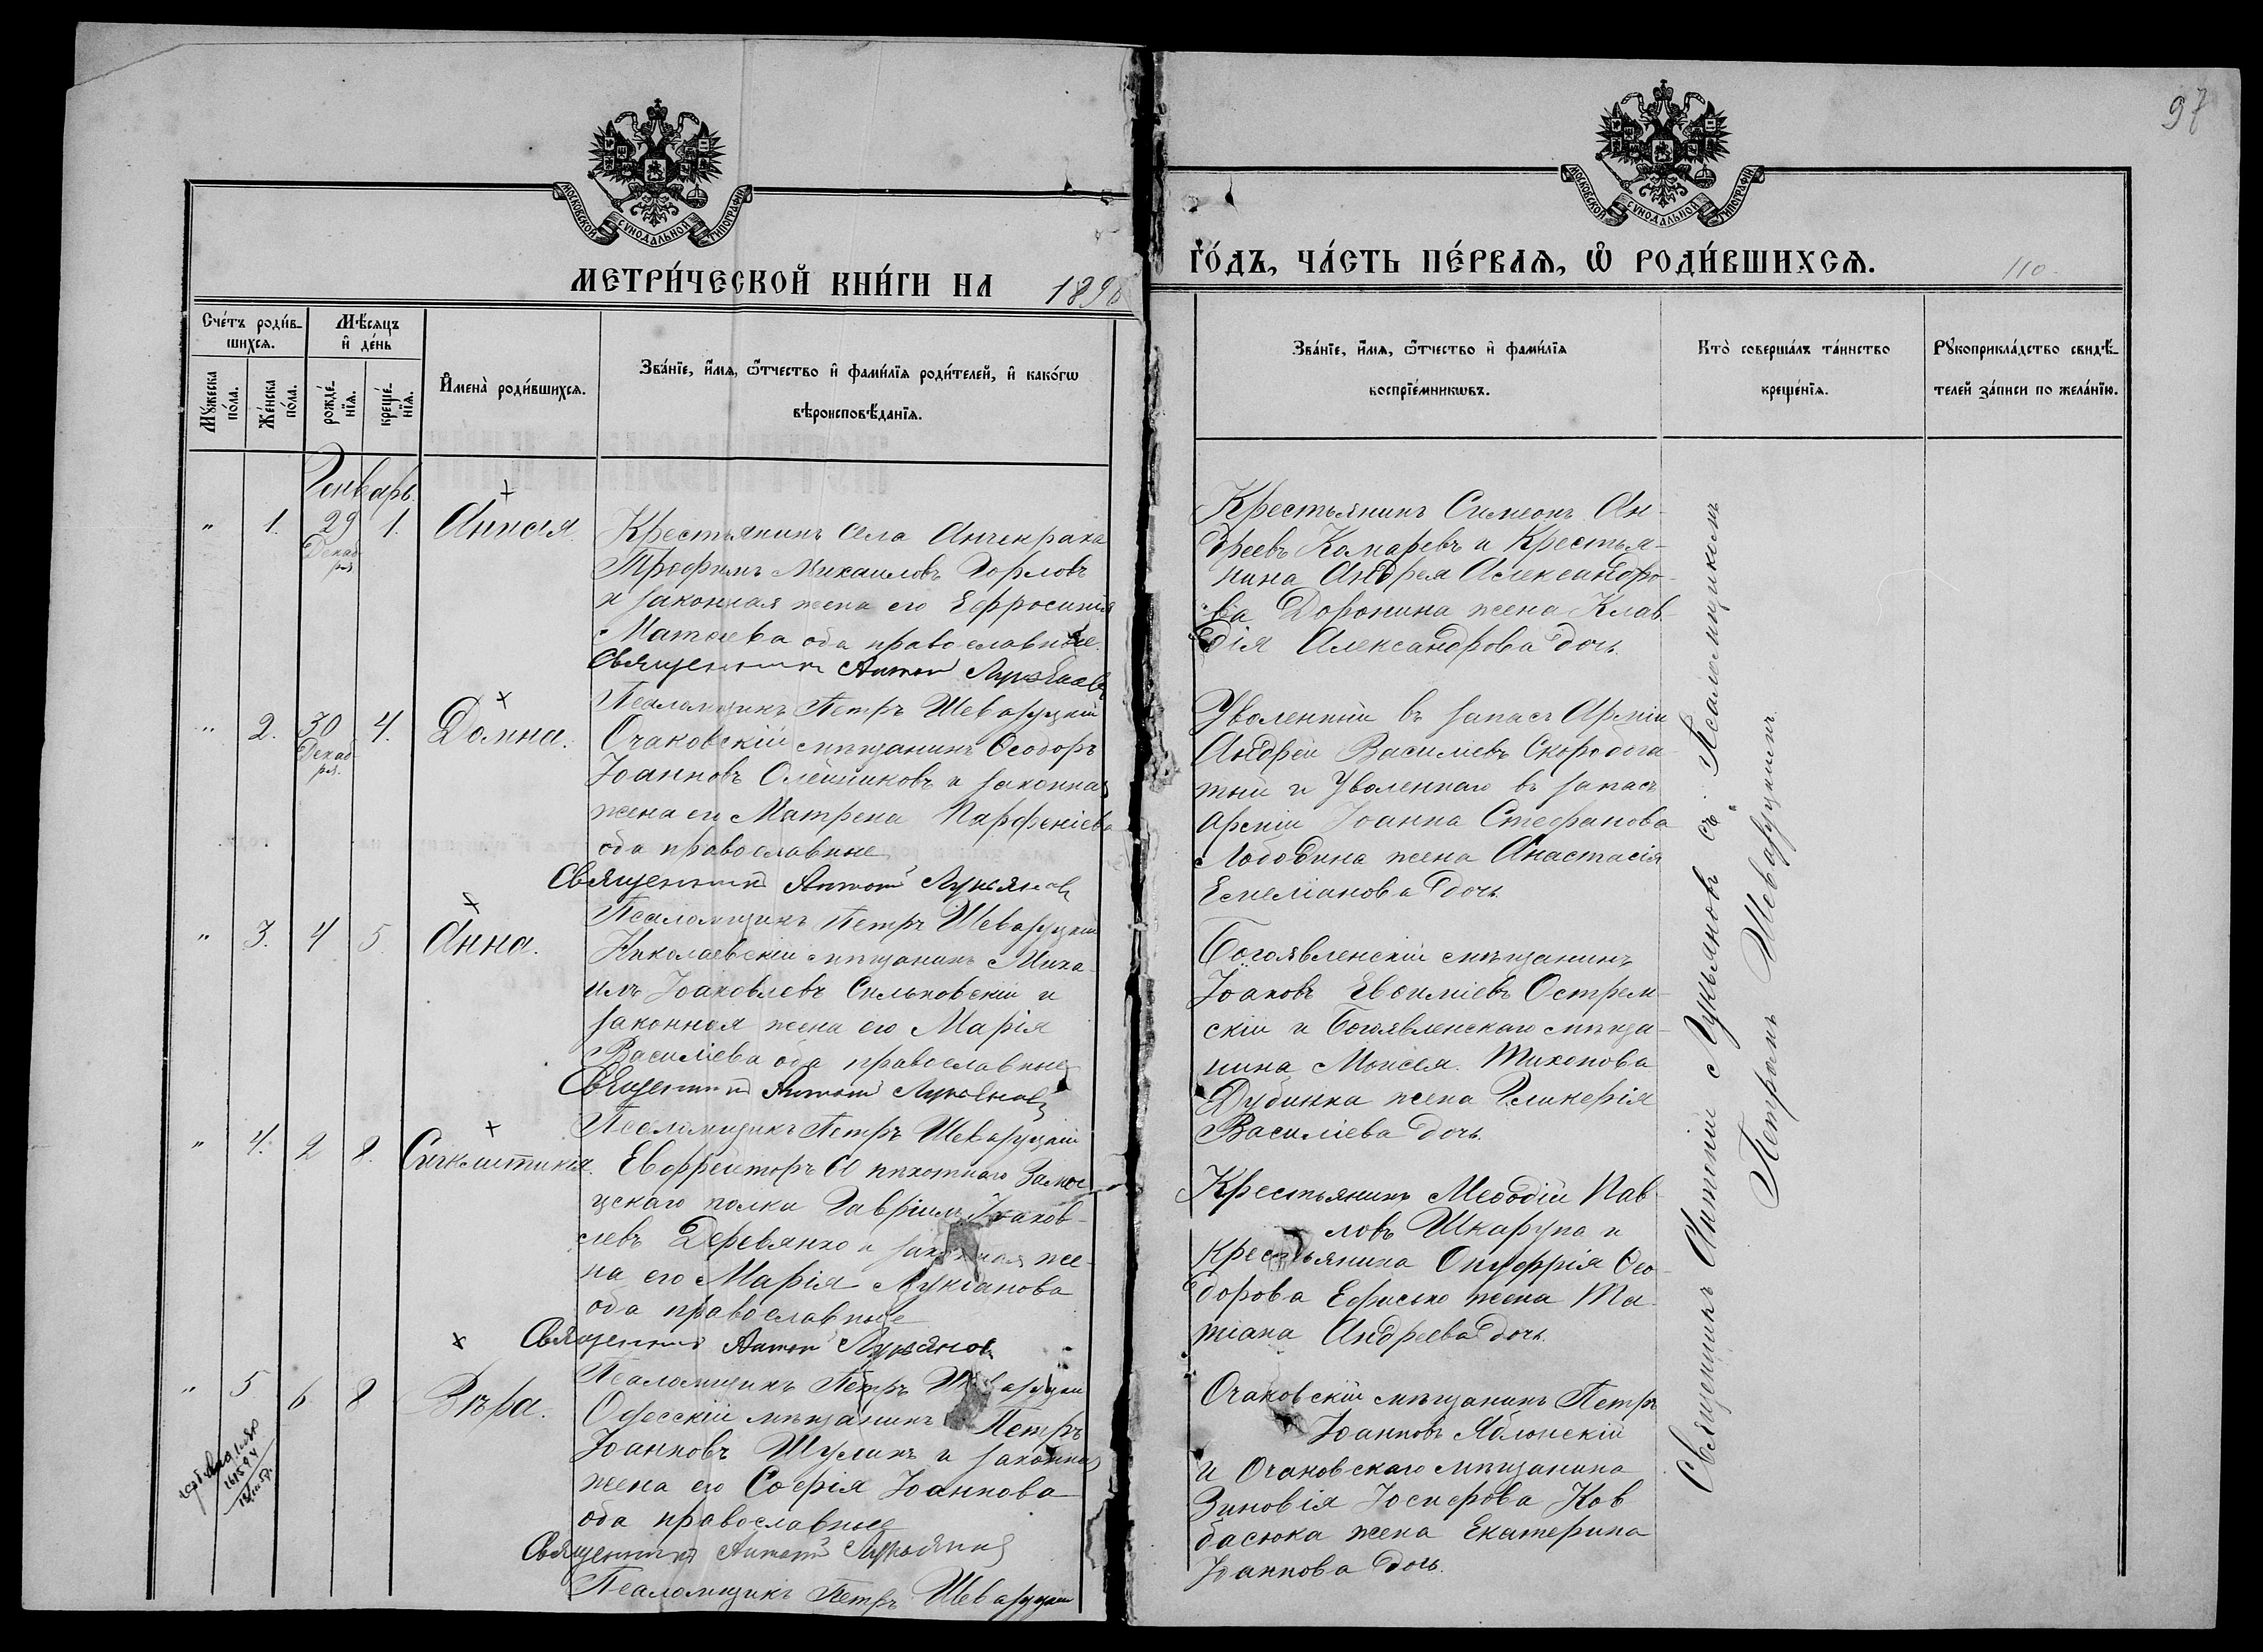 97
МОСКОВСКОЙ СѴНОДАЛЬНОЙ ТИПОГРАФІИ
МОСКОВСКОЙ СѴНОДАЛЬНОЙ ТИПОГРАФІИ
МЕТРИ́ЧЕСКОЙ КНИ́ГИ НА 1890
ГО́ДЪ, ЧА́СТЬ ПЕ́РВАѦ, Ѡ҆ РОДИ́ВШИХСѦ.
110
Сче́тъ роди́в-
шихсѧ.
Мꙋ́жеска
по́ла.
Же́нска
по́ла.
Мѣ́сѧцъ
и҆ де́нь
рожде́-
нїѧ.
креще́-
нїѧ.
И҆мена̀ роди́вшихсѧ.
Зва́нїе, и҆́мѧ, ѻ҆́тчество и҆ фами́лїѧ роди́телей, и҆ како́гѡ
вѣроисповѣ́данїѧ.
Зва́нїе, и҆́мѧ, ѻ҆́тчество и҆ фами́лїѧ
воспрїе́мникѡвъ.
Кто̀ соверша́лъ та́инство
креще́нїѧ.
Рꙋкоприкла́дство свидѣ́-
телей за́писи по жела́нїю.
Генварь
" 1. 29 1. Анисія.
Декаб
ря
Крестьянинъ села Анчекрака
Трофимъ Михаиловъ Горловъ
и законная жена его Ефросинія
Матѳеева оба православные.
Священникъ Антоній Лукьяновъ
Псаломщикъ Петръ Шеваруцкій
Крестьянинъ Симеонъ Ан-
дреевъ Комаревъ и Крестья-
нина Андрея Александро-
ва Доронина жена Клав-
дія Александрова дочь.
" 2. 30 4. Домна.
Декаб
ря.
Очаковскій мѣщанинъ Ѳеодоръ
Іоанновъ Олейниковъ и законная
жена его Матрена Парфеніева
оба православные
Священникъ Антоній Лукьяновъ
Псаломщикъ Петръ Шеваруцкій
Уволенный въ запасъ Арміи
Андрей Василіевъ Скоробога-
тый и Уволеннаго въ запасъ
Арміи Іоанна Стефанова
Лободина жена Анастасія
Емеліанова дочь.
" 3. 4 5. Анна.
Николаевскій мѣщанинъ Миха-
илъ Іоаковлевъ Сильковскій и
законная жена его Марія
Василіева оба православные
Священникъ Антоній Лукьяновъ
Псаломщикъ Петръ Шеваруцкій
Богоявленскій мѣщанинъ
Іоаковъ Евѳиміевъ Острем-
скій и Богоявленскаго мѣща-
нина Моисея Тихонова
Дубинка жена Гликерія
Василіева дочь.
" 4. 2 8. Сигклитикія.
Ефрейторъ 60 пѣхотнаго Замос
цскаго полка Гавріилъ Іоаков-
левъ Деревянко и законная же-
на его Марія Лукіанова
оба православные
Священникъ Антоній Лукьяновъ
Псаломщикъ Петръ Шеваруцкій
Крестьянинъ Меѳодій Пав-
ловъ Шкарупа и
Крестьянина Онуфрія Ѳео-
дорова Ефисько жена Та-
тіана Андреева дочь.
" 5. 6 8 Вѣра.
Одесскій мѣщанинъ Петръ
Іоанновъ Шулик и законная
жена его Софія Іоаннова
оба православные
Священникъ Антоній Лукьяновъ
Псаломщикъ Петръ Шеваруцкій
Очаковскій мѣщанинъ Петръ
Іоанновъ Яблонскій
и Очаковскаго мѣщанина
Зиновія Іосифова Ков
басюка жена Екатерина
Іоаннова дочь.
Священникъ Антоній Лукьяновъ съ Псаломщикомъ
Петромъ Шеваруцкимъ